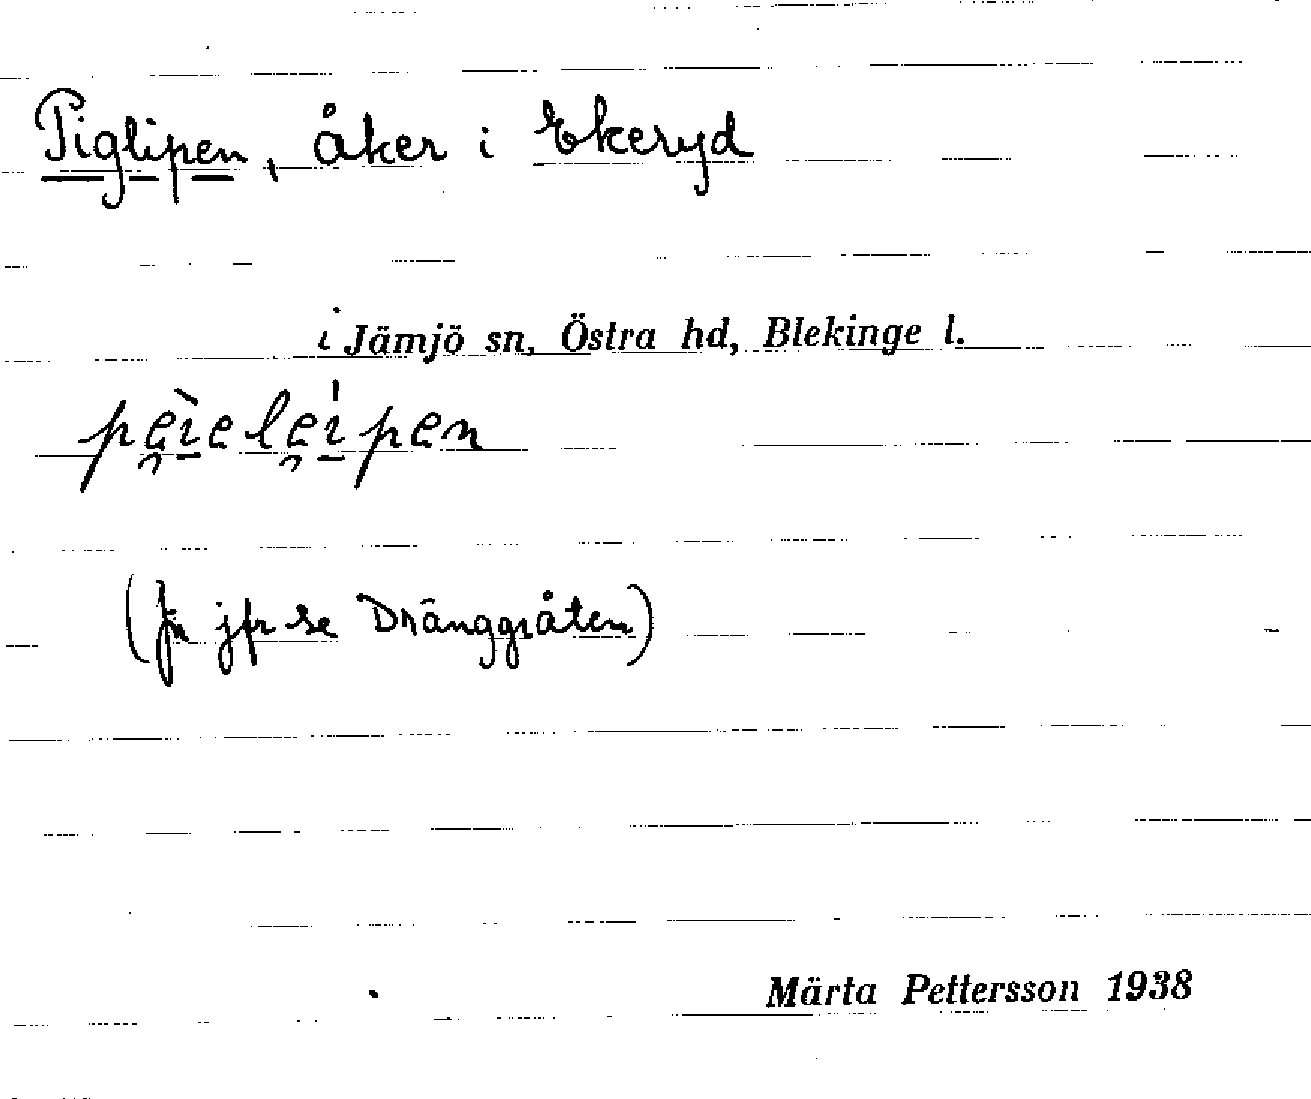 Piglipen, åker i Ekeryd
i Jämjö sn, Östra hd, Blekinge l.
pe̯ìele̯ípen
jfr se Dränggråten)
Märta Pettersson 1938